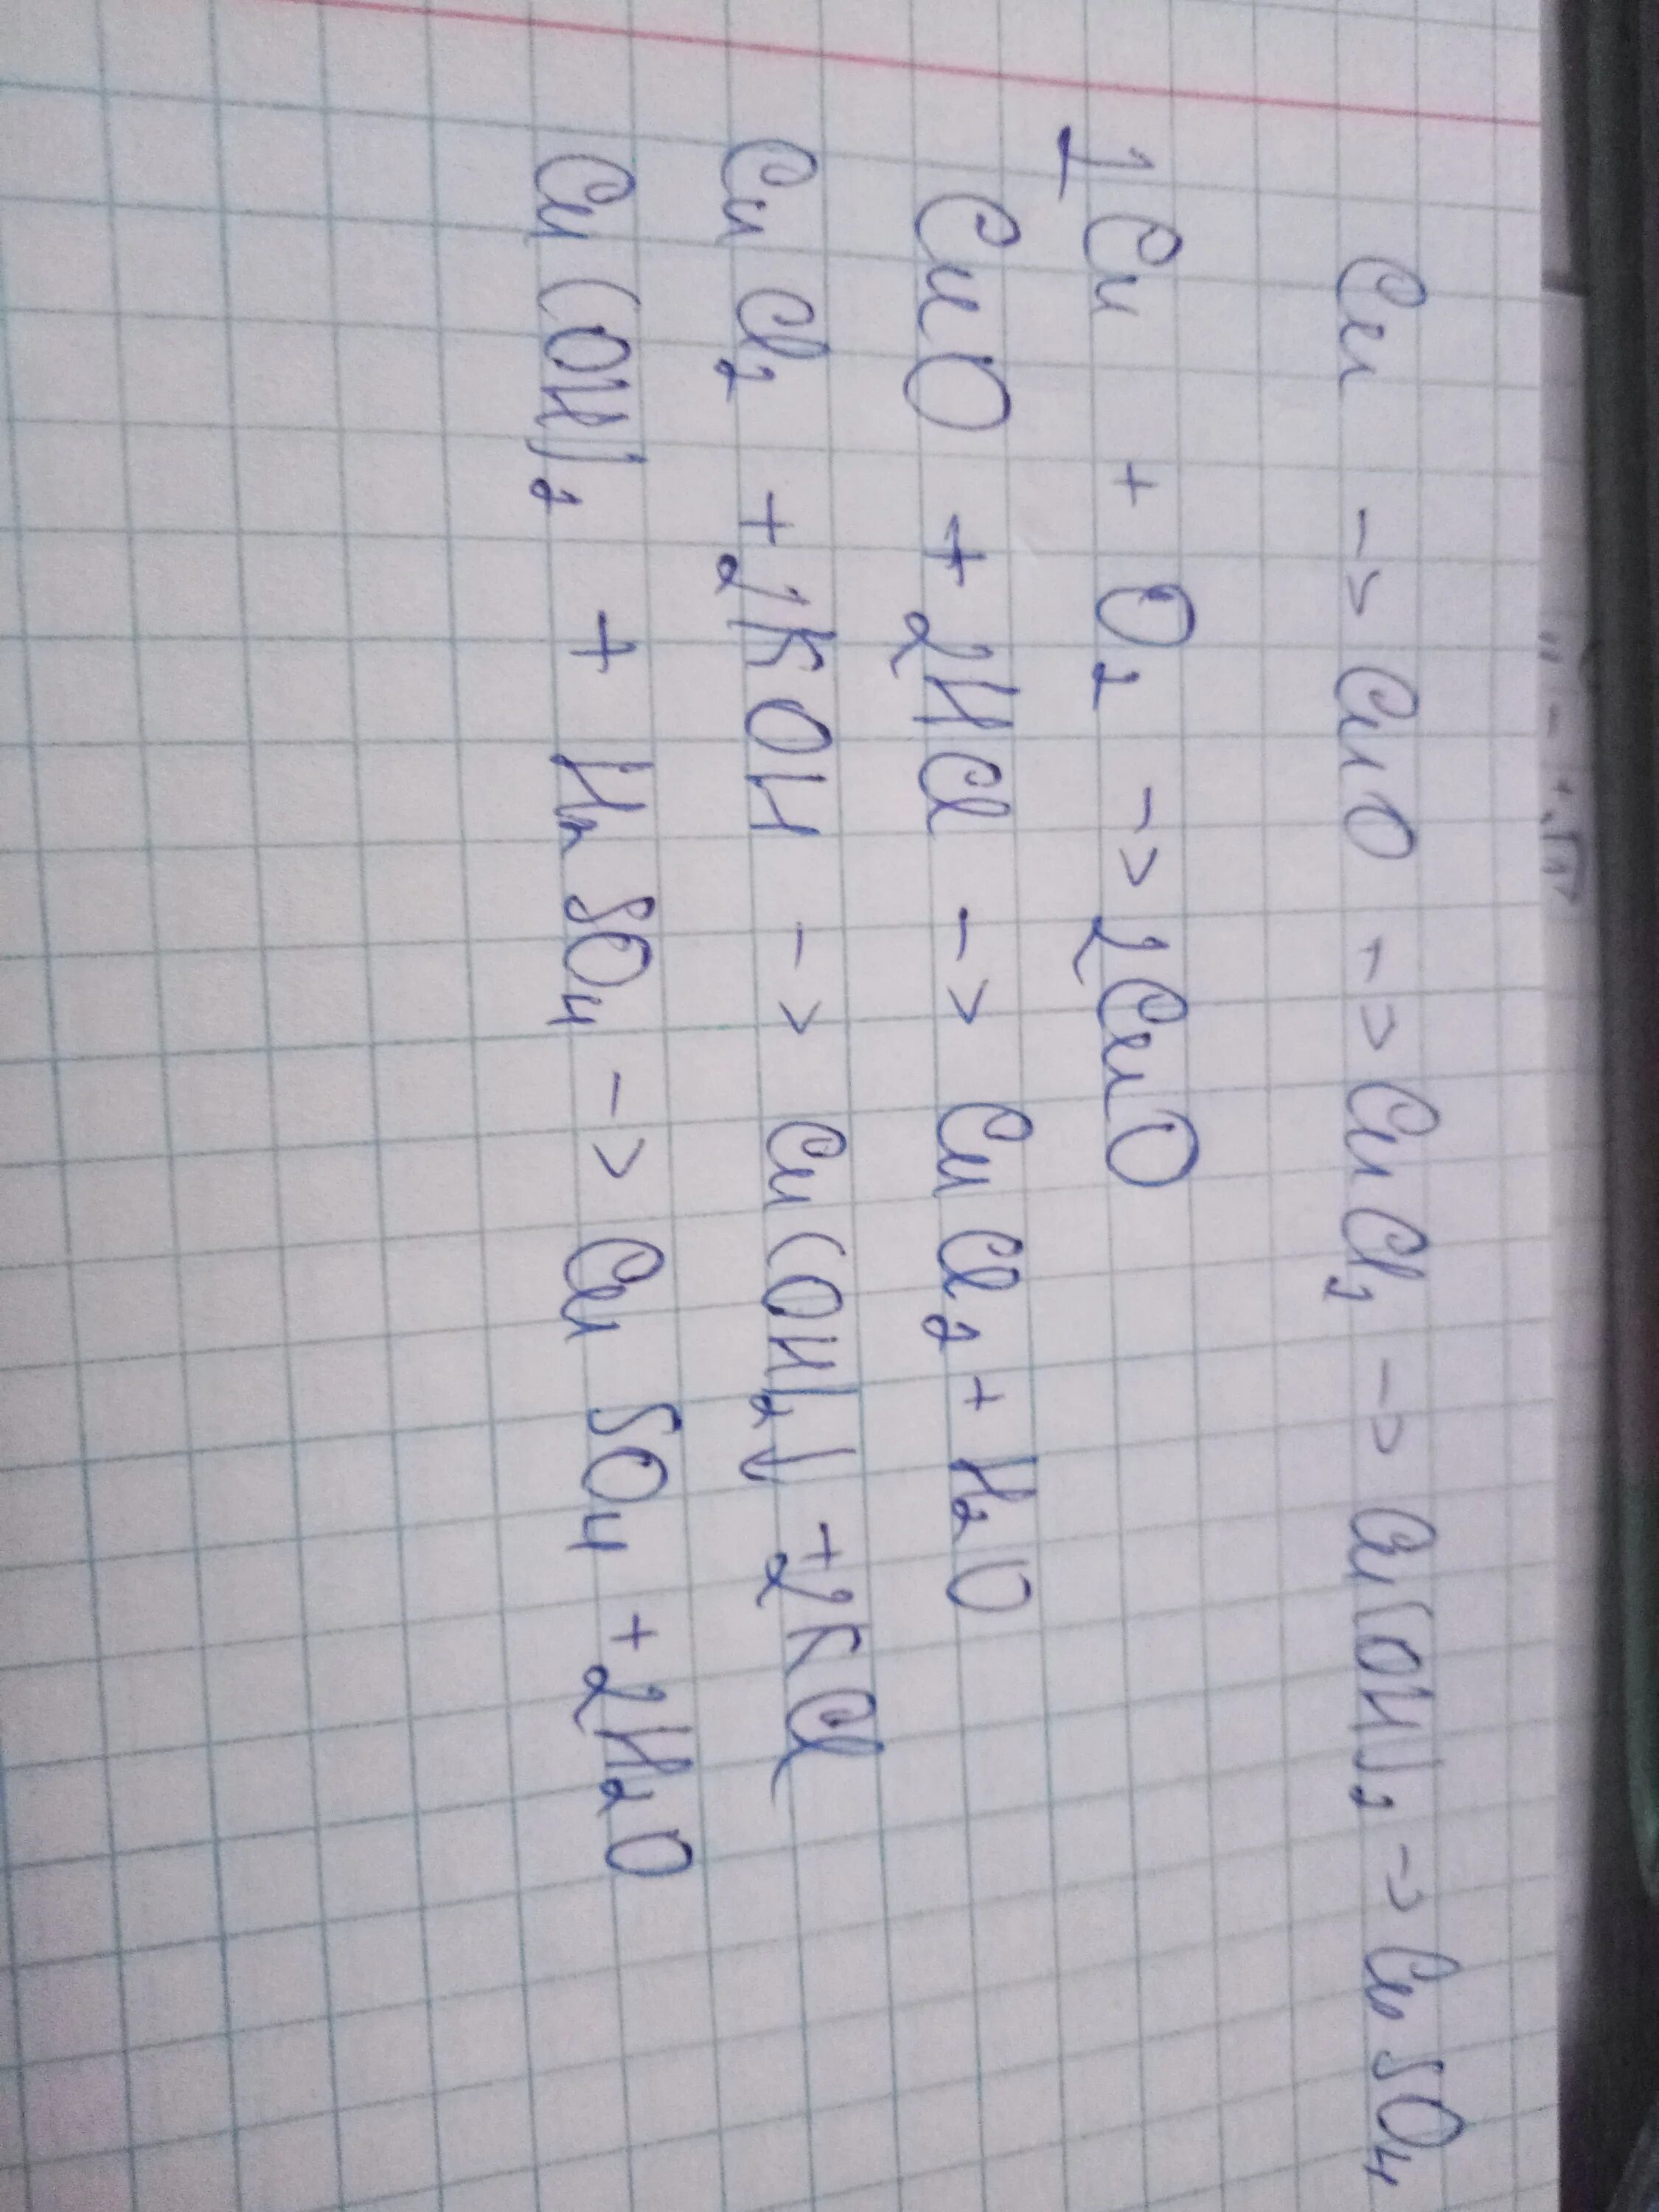 Cu -> CuO -> CuCl₂ -> Cu(OH)₂ -> CuSO₄
2Cu + O₂ -> 2CuO
CuO + 2HCl -> CuCl₂ + H₂O
CuCl₂ + 2KOH -> Cu(OH)₂↓ + 2KCl
Cu(OH)₂ + H₂SO₄ -> CuSO₄ + 2H₂O